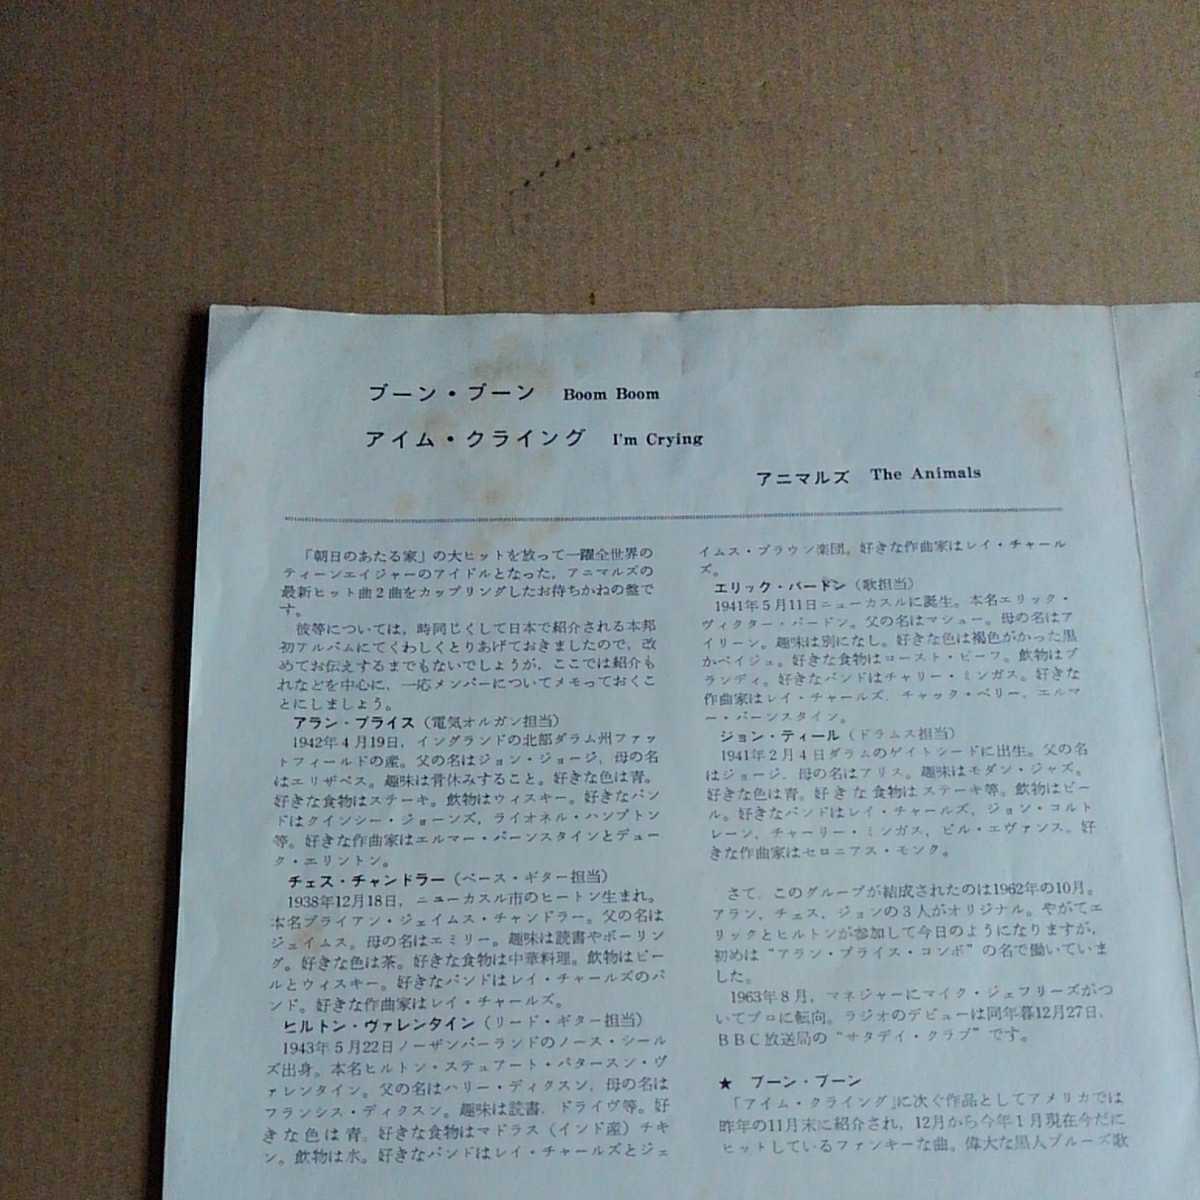 ブーン・ブーン Boom Boom
アイム・クライング I'm Crying
アニマルズ The Animals
「朝日のあたる家」の大ヒットを放って一躍全世界の
ティーンエイジャーのアイドルとなった，アニマルズの
最新ヒット曲2曲をカップリングしたお待ちかねの盤で
す。
彼等については，時同じくして日本で紹介される本邦
初アルバムにてくわしくとりあげておきましたので，改
めてお伝えするまでもないでしょうが，ここでは紹介も
れなどを中心に，一応メンバーについてメモっておくこ
とにしましょう。
アラン・プライス（電気オルガン担当）
1942年4月19日，イングランドの北部ダラム州ファッ
トフィールドの産。父の名はジョン・ジョージ，母の名
はエリザベス。趣味は骨休みすること。好きな色は青。
好きな食物はステーキ。飲物はウィスキー。好きなバン
ドはクインシー・ジョーンズ，ライオネル・ハンプトン
等。好きな作曲家はエルマー・バーンスタインとデュー
ク・エリントン。
チェス・チャンドラー（ベース・ギター担当）
1938年12月18日，ニューカスル市のヒートン生まれ。
本名ブライアン・ジェイムス・チャンドラー。父の名は
ジェイムス。母の名はエミリー。趣味は読書やボーリン
グ。好きな色は茶。好きな食物は中華料理。飲物はビー
ルとウィスキー。好きなバンドはレイ・チャールズのバ
ンド。好きな作曲家はレイ・チャールズ。
ヒルトン・ヴァレンタイン（リード・ギター担当）
1943年5月22日ノーザンバーランドのノース・シール
ズ出身。本名ヒルトン・ステュアート・パタースン・ヴ
ァレンタイン。父の名はハリー・ディクスン，母の名は
フランシス・ディクスン。趣味は読書，ドライヴ等。好
きな色は青。好きな食物はマドラス（インド産）チキ
ン。飲物は水。好きなバンドはレイ・チャールズとジェ
イムス・ブラウン楽団。好きな作曲家はレイ・チャール
ズ。
エリック・バードン（歌担当）
1941年5月11日ニューカスルに誕生。本名エリック・
ヴィクター・バードン。父の名はマシュー。母の名はア
イリーン。趣味は別になし。好きな色は褐色がかった黒
かベイジュ。好きな食物はロースト・ビーフ。飲物はブ
ランディ。好きなバンドはチャリー・ミンガス。好きな
作曲家はレイ・チャールズ，チャック・ベリー，エルマ
ー・バーンスタイン。
ジョン・ティール（ドラムス担当）
1941年2月4日ダラムのゲイトシードに出生。父の名
はジョージ，母の名はアリス。趣味はモダン・ジャズ。
好きな色は青。好きな食物はステーキ等。飲物はビー
ル。好きなバンドはレイ・チャールズ，ジョン・コルト
レーン，チャーリー・ミンガス，ビル・エヴァンス。好
きな作曲家はセロニアス・モンク。
さて，このグループが結成されたのは1962年の10月。
アラン，チェス，ジョンの3人がオリジナル。やがてエ
リックとヒルトンが参加して今日のようになりますが，
初めは“アラン・プライス・コンボ”の名で働いていま
した。
1963年8月，マネジャーにマイク・ジェフリーズがつ
いてプロに転向。ラジオのデビューは同年暮12月27日，
BBC放送局の“サタデイ・クラブ”です。
★ ブーン・ブーン
「アイム・クライング」に次ぐ作品としてアメリカでは
昨年の11月末に紹介され，12月から今年1月現在今だに
ヒットしているファンキーな曲。偉大な黒人ブルーズ歌